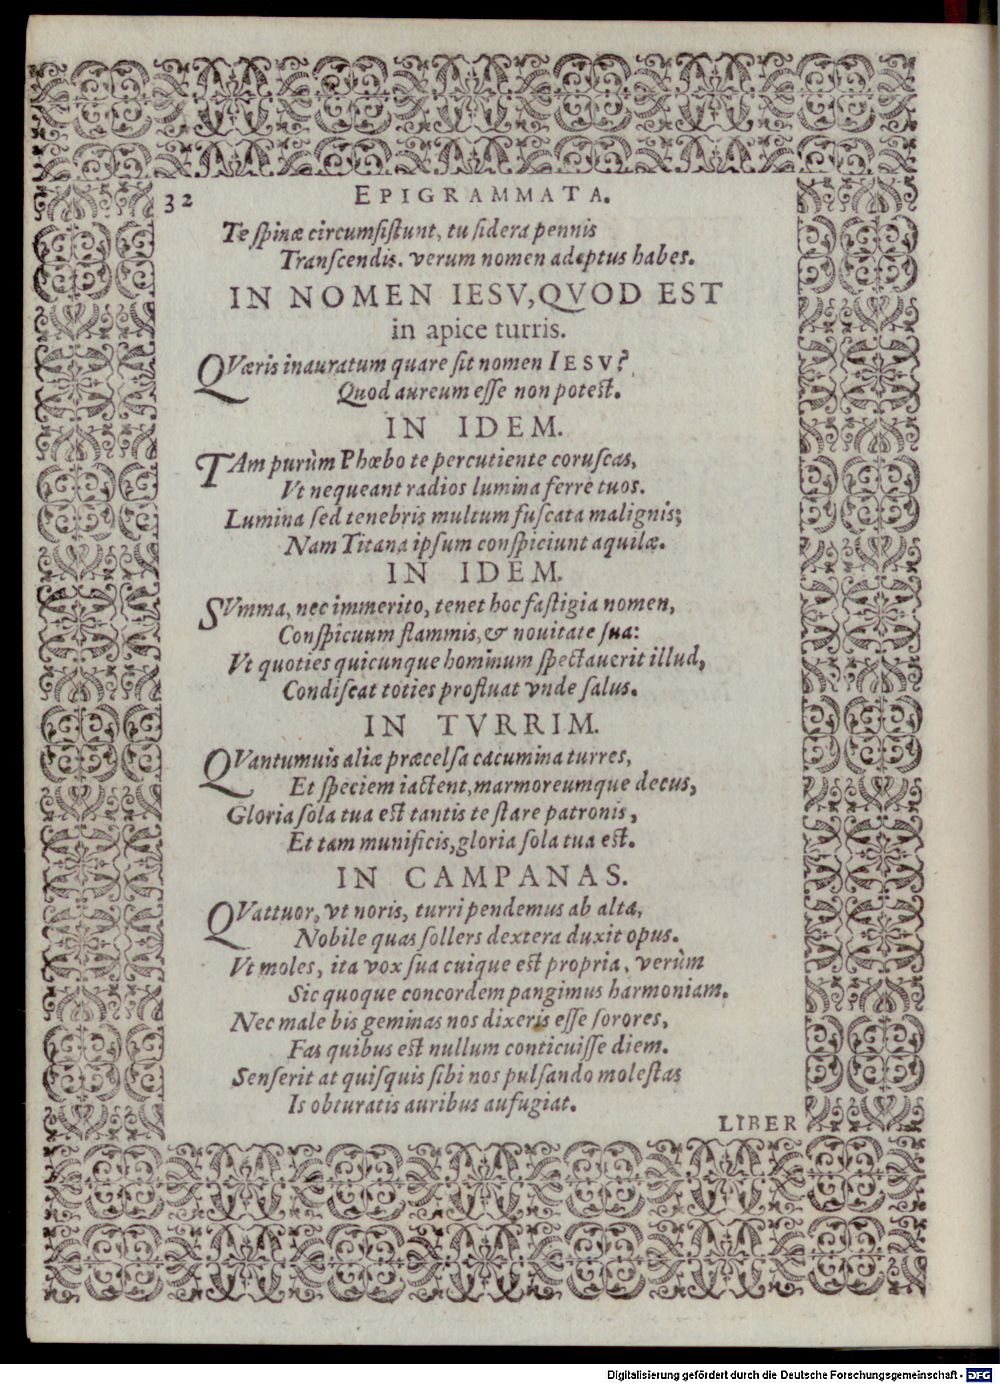 32 EPIGRAMMATA.
Te spinæ circumsistunt, tu sidera pennis
Transcendis. verum nomen adeptus habes.
IN NOMEN IESV, QVOD EST
in apice turris.
QVæris inauratum quare sit nomen IESV?
Quod aureum esse non potest.
IN IDEM.
TAm purùm Phœbo te percutiente coruscas,
Vt nequeant radios lumina ferre tuos.
Lumina sed tenebris multum fuscata malignis;
Nam Titana ipsum conspiciunt aquilæ.
IN IDEM.
SVmma, nec immerito, tenet hoc fastigia nomen,
Conspicuum flammis, & nouitate sua:
Vt quoties quicunque hominum spectauerit illud,
Condiscat toties profluat vnde salus.
IN TVRRIM.
QVantumuis aliæ præcelsa cacumina turres,
Et speciem iactent, marmoreumque decus,
Gloria sola tua est tantis te stare patronis,
Et tam munificis, gloria sola tua est.
IN CAMPANAS.
QVattuor, vt noris, turri pendemus ab alta,
Nobile quas sollers dextera duxit opus.
Vt moles, ita vox sua cuique est propria, verùm
Sic quoque concordem pangimus harmoniam.
Nec male bis geminas nos dixeris esse sorores,
Fas quibus est nullum conticuisse diem.
Senserit at quisquis sibi nos pulsando molestas
Is obturatis auribus aufugiat.
LIBER
Digitalisierung gefördert durch die Deutsche Forschungsgemeinschaft - DFG